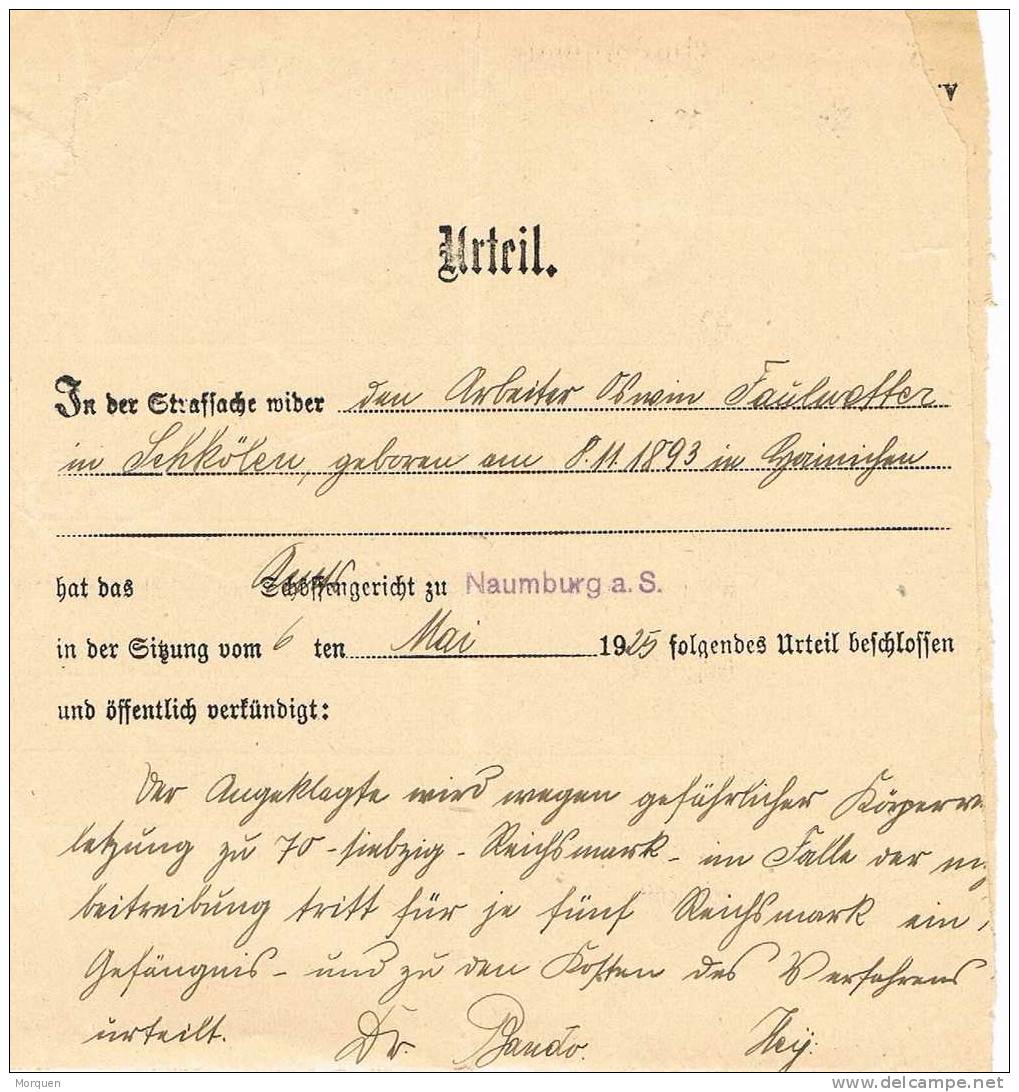 Urteil.
In der Strafsache wider den Arbeiter Oswin Faulwetter
in Schkölen, geboren am 8.11.1893 in Hainichen
hat das Schöffengericht zu Naumburg a. S.
in der Sitzung vom 6 ten Mai 1925 folgendes Urteil beschlossen
und öffentlich verkündigt:
Der Angeklagte wird wegen gefährlicher Körperve
letzung zu 70 - siebzig - Reichsmark - im Falle der
beitreibung tritt für je fünf Reichsmark ein
Gefängnis - und zu den Kosten des Verfahrens
urteilt. Dr.
Morquen
delcampe.net